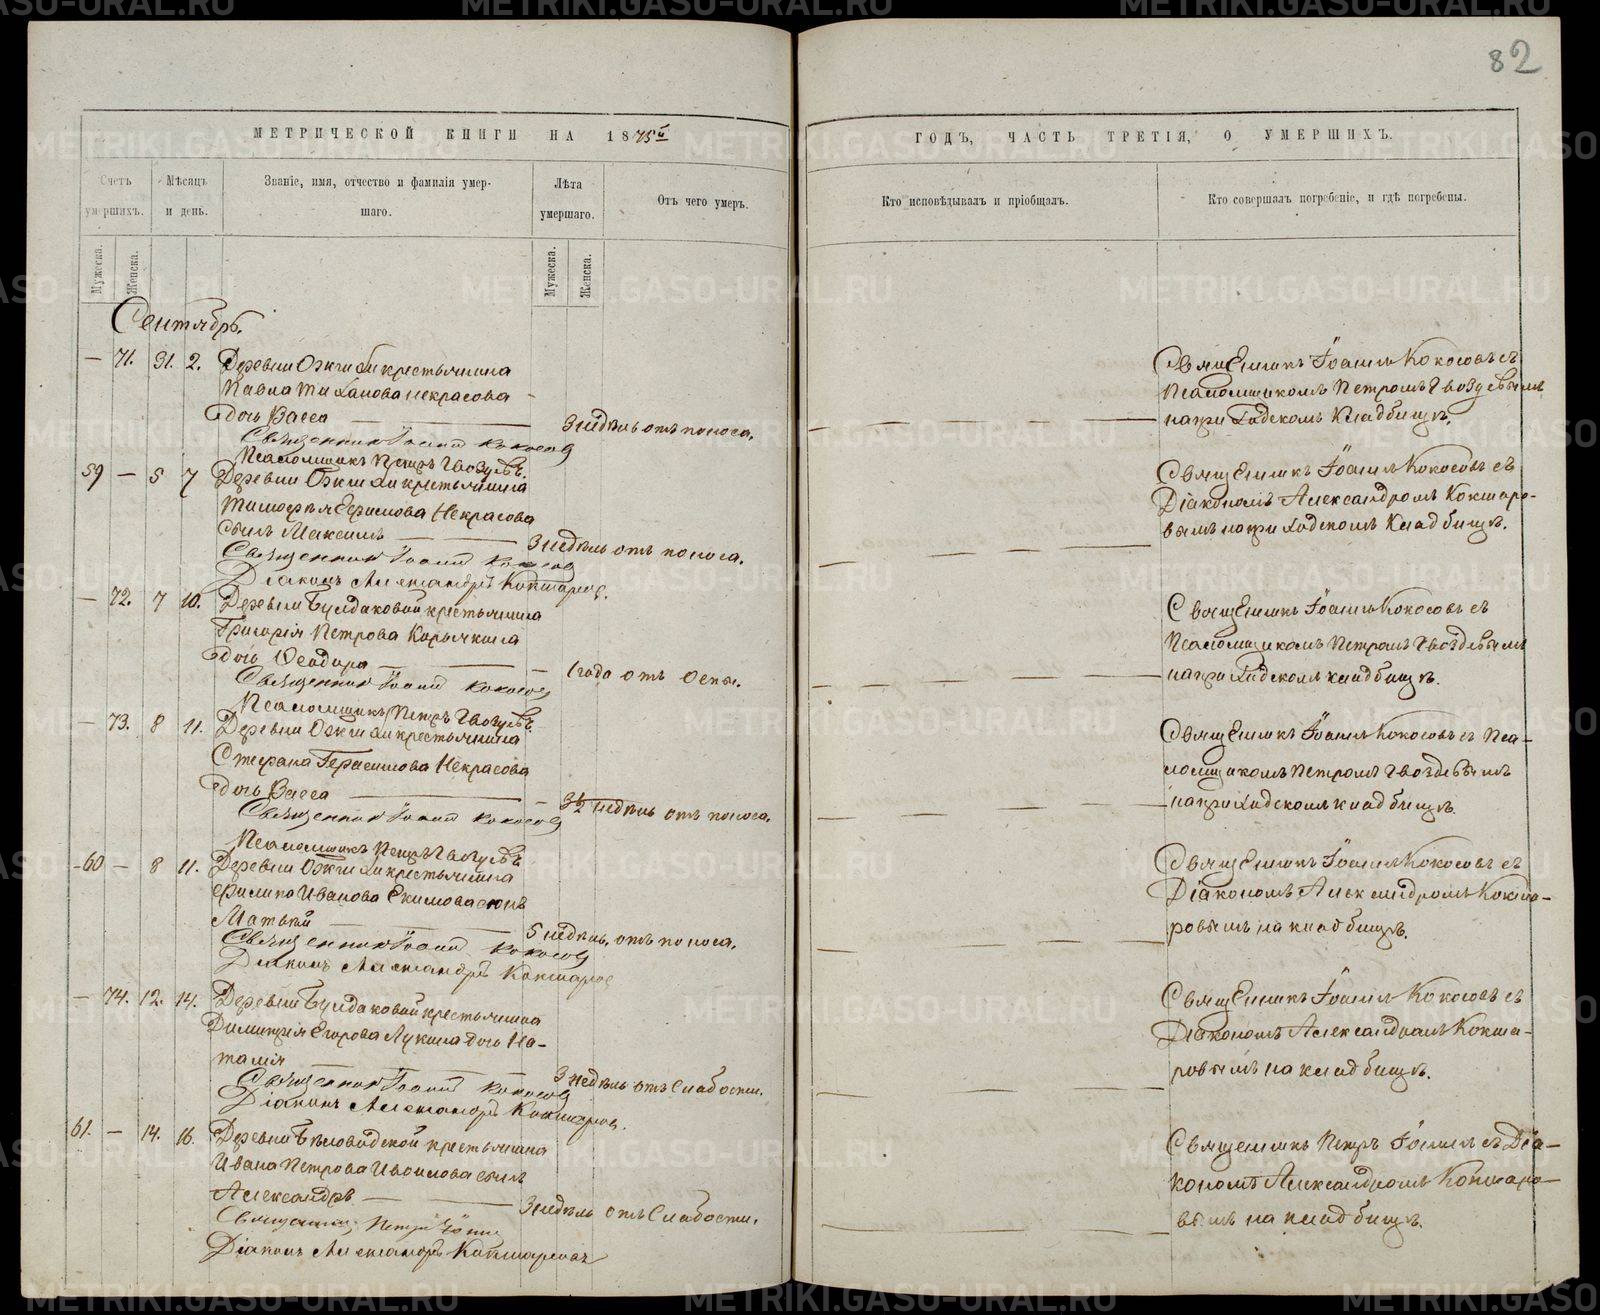 82
МЕТРИЧЕСКОЙ КНИГИ НА 1875й
ГОДЪ, ЧАСТЬ ТРЕТІЯ, О УМЕРШИХЪ.
Счетъ умершихъ.
Мѣсяцъ и день.
Званіе, имя, отчество и фамилія умершаго.
Лѣта умершаго.
Отъ чего умеръ.
Кто исповѣдывалъ и пріобщалъ.
Кто совершалъ погребеніе, и гдѣ погребены.
Мужеска.
Женска.
Мужеска.
Женска.
Сентябрь.
— 71. 31. 2. Деревни крестьянина
Павла Некрасова
дочь Васса — 3 недѣль отъ поноса.
Священник Іоанн Кокосов
Псаломщикъ Петръ Гвоздевъ.
Священникъ Іоаннъ Кокосовъ съ
Псаломщикомъ Петромъ Гвоздевымъ
на приходскомъ кладбищѣ.
59 — 5 7 Деревни крестьянина
Тимофея Ефимова Некрасова
сынъ Максимъ — 3 недѣль отъ поноса.
Священник Іоанн Кокосов
Діаконъ Александръ Кокшаров.
Священникъ Іоаннъ Кокосовъ съ
Діакономъ Александромъ Кокшаро-
вымъ на приходскомъ кладбищѣ.
— 72. 7 10. Деревни Булдаковой крестьянина
Григорія Петрова
дочь Ѳеодора — 1 года отъ Оспы.
Священник Іоанн Кокосов
Псаломщикъ Петръ Гвоздевъ.
Священникъ Іоаннъ Кокосовъ съ
Псаломщикомъ Петромъ Гвоздевымъ
на приходскомъ кладбищѣ.
— 73. 8 11. Деревни крестьянина
Стефана Герасимова Некрасова
дочь Васса — 3½ недѣль отъ поноса.
Священник Іоанн Кокосов
Псаломщикъ Петръ Гвоздевъ
Священникъ Іоаннъ Кокосовъ съ Пса-
ломщикомъ Петромъ Гвоздевымъ
на приходскомъ кладбищѣ.
60 — 8 11. Деревни крестьянина
Филипа Иванова Екимова сынъ
Матвѣй — 5 недѣль отъ поноса.
Священник Іоанн Кокосов
Діаконъ Александръ Кокшаров
Священникъ Іоаннъ Кокосовъ съ
Діакономъ Александромъ Кокша-
ровымъ на кладбищѣ.
— 74. 12. 14. Деревни Булдаковой крестьянина
Димитрія Егорова Лукина дочь На-
талія — 3 недѣль отъ Слабости.
Священник Іоанн Кокосов
Діаконъ Александръ Кокшаров.
Священникъ Іоаннъ Кокосовъ съ
Діакономъ Александромъ Кокша-
ровымъ на кладбищѣ.
61. — 14. 16. Деревни крестьянина
Ивана Петрова сынъ
Александръ — 3 недѣль отъ Слабости.
Священник Петръ
Діаконъ Александръ Кокшаровъ
Священникъ Петръ съ Діа-
кономъ Александромъ Кокшаро-
вымъ на кладбищѣ.
METRIKI.GASO-URAL.RU